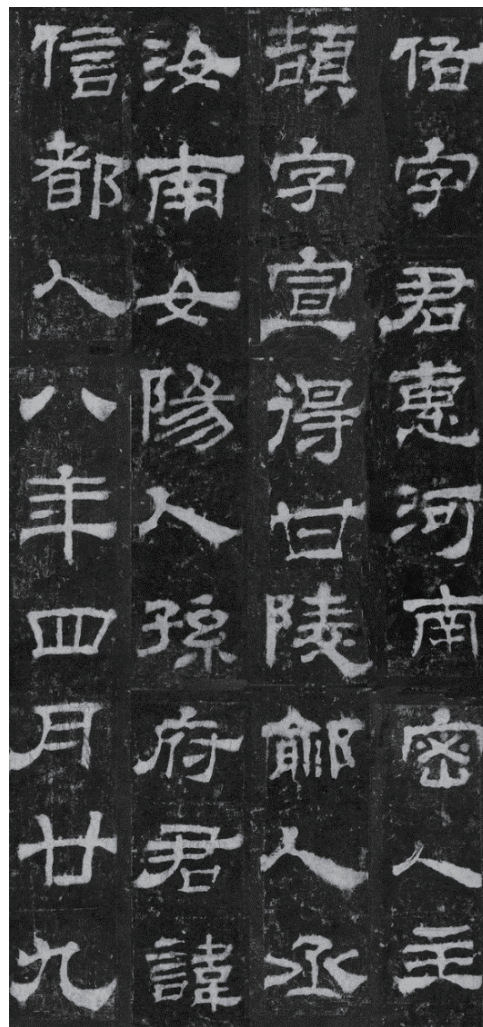 佑字君惠河南密人主
頡字宣得甘陵鄃人丞
汝南女陽人孫府君諱
信都人八年四月廿九